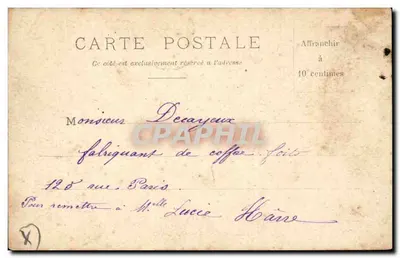 CARTE POSTALE
Ce côté est exclusivement réservé à l'adresse
Affranchir
à
10 centimes
Monsieur Decayeux
CPARAMA
fabriquant de coffre forts
120 rue Paris.
Pour remettre à Mlle Lucie Harre
X